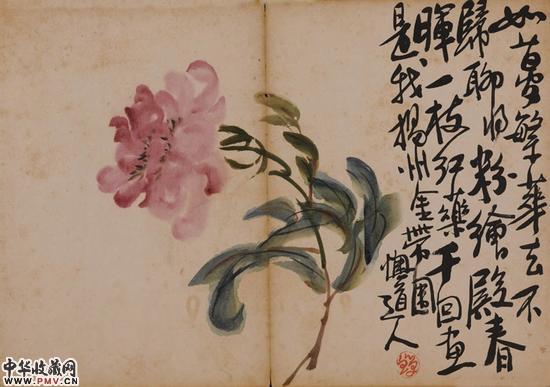 如夢繁華去不
歸聊將粉繪殿春
暉一枝紅藥千回畫
是我揚州金帶圍
懊道人
中华收藏网
WWW.PMV.CN